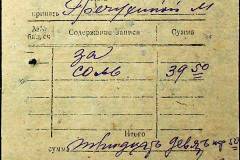 принять Гречухиной М
№№ Содержание записи Сумма
за
соль 39 50
Итого
сумма тридцать девять р 50